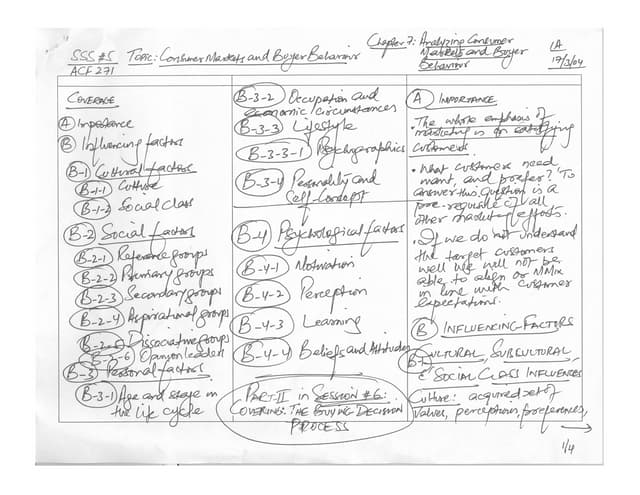 SSS #5 Topic: Consumer Markets and Buyer Behaviour
ACF 271
Chapter 7: Analyzing Consumer
Markets and Buyer
Behaviour
LA
17/3/04
COVERAGE
A Importance
B Influencing factors
B-1 Cultural factors
B-1-1 Culture
B-1-2 Social Class
B-2 Social factors
B-2-1 Reference groups
B-2-2 Primary groups
B-2-3 Secondary groups
B-2-4 Aspirational groups
B-2-5 Dissociative groups
B-2-6 Opinion leaders
B-3 Personal factors
B-3-1 Age and stage in
the life cycle
B-3-2 Occupation and
economic circumstances
B-3-3 Lifestyle
B-3-3-1 Psychographics
B-3-4 Personality and
Self-Concept
B-4 Psychological factors
B-4-1 Motivation
B-4-2 Perception
B-4-3 Learning
B-4-4 Beliefs and Attitudes
PART-II in SESSION #6:
COVERING: THE BUYING DECISION
PROCESS
A IMPORTANCE
• The whole emphasis of
marketing is on satisfying
customers
• What customers need
want, and prefer? To
answer this question is a
pre-requisite of all
other marketing efforts.
• If we do not understand
the target customers
well we will not be
able to align or MMix
in line with customer
expectations.
B INFLUENCING FACTORS
B-1 CULTURAL, SUBCULTURAL,
& SOCIAL CLASS INFLUENCES
Culture: acquired set of
values, perceptions, preferences, →
1/4